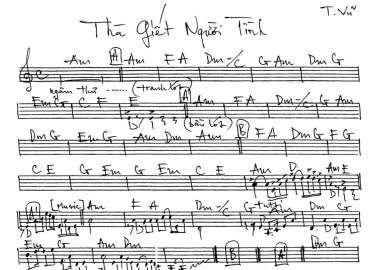 T. Vũ
Tha Giết Người Tình
Am A Am F A Dm-/C G Am Dm G
ngâm thơ ...... (tranh lót)
Em G C E E A Am F A Dm-/C G Am
(bầu lót)
Dm G Em G Am Dm Am B F A Dm G F G
C E G Em G Em C E Am D Am E
A [Music] Am F A Dm-/C G Am Dm G
Em G Am Dm B A Dm G